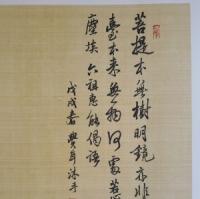 菩提本無樹明鏡亦非
臺本来無物何處惹
塵埃 六祖惠能偈語
戊戌春